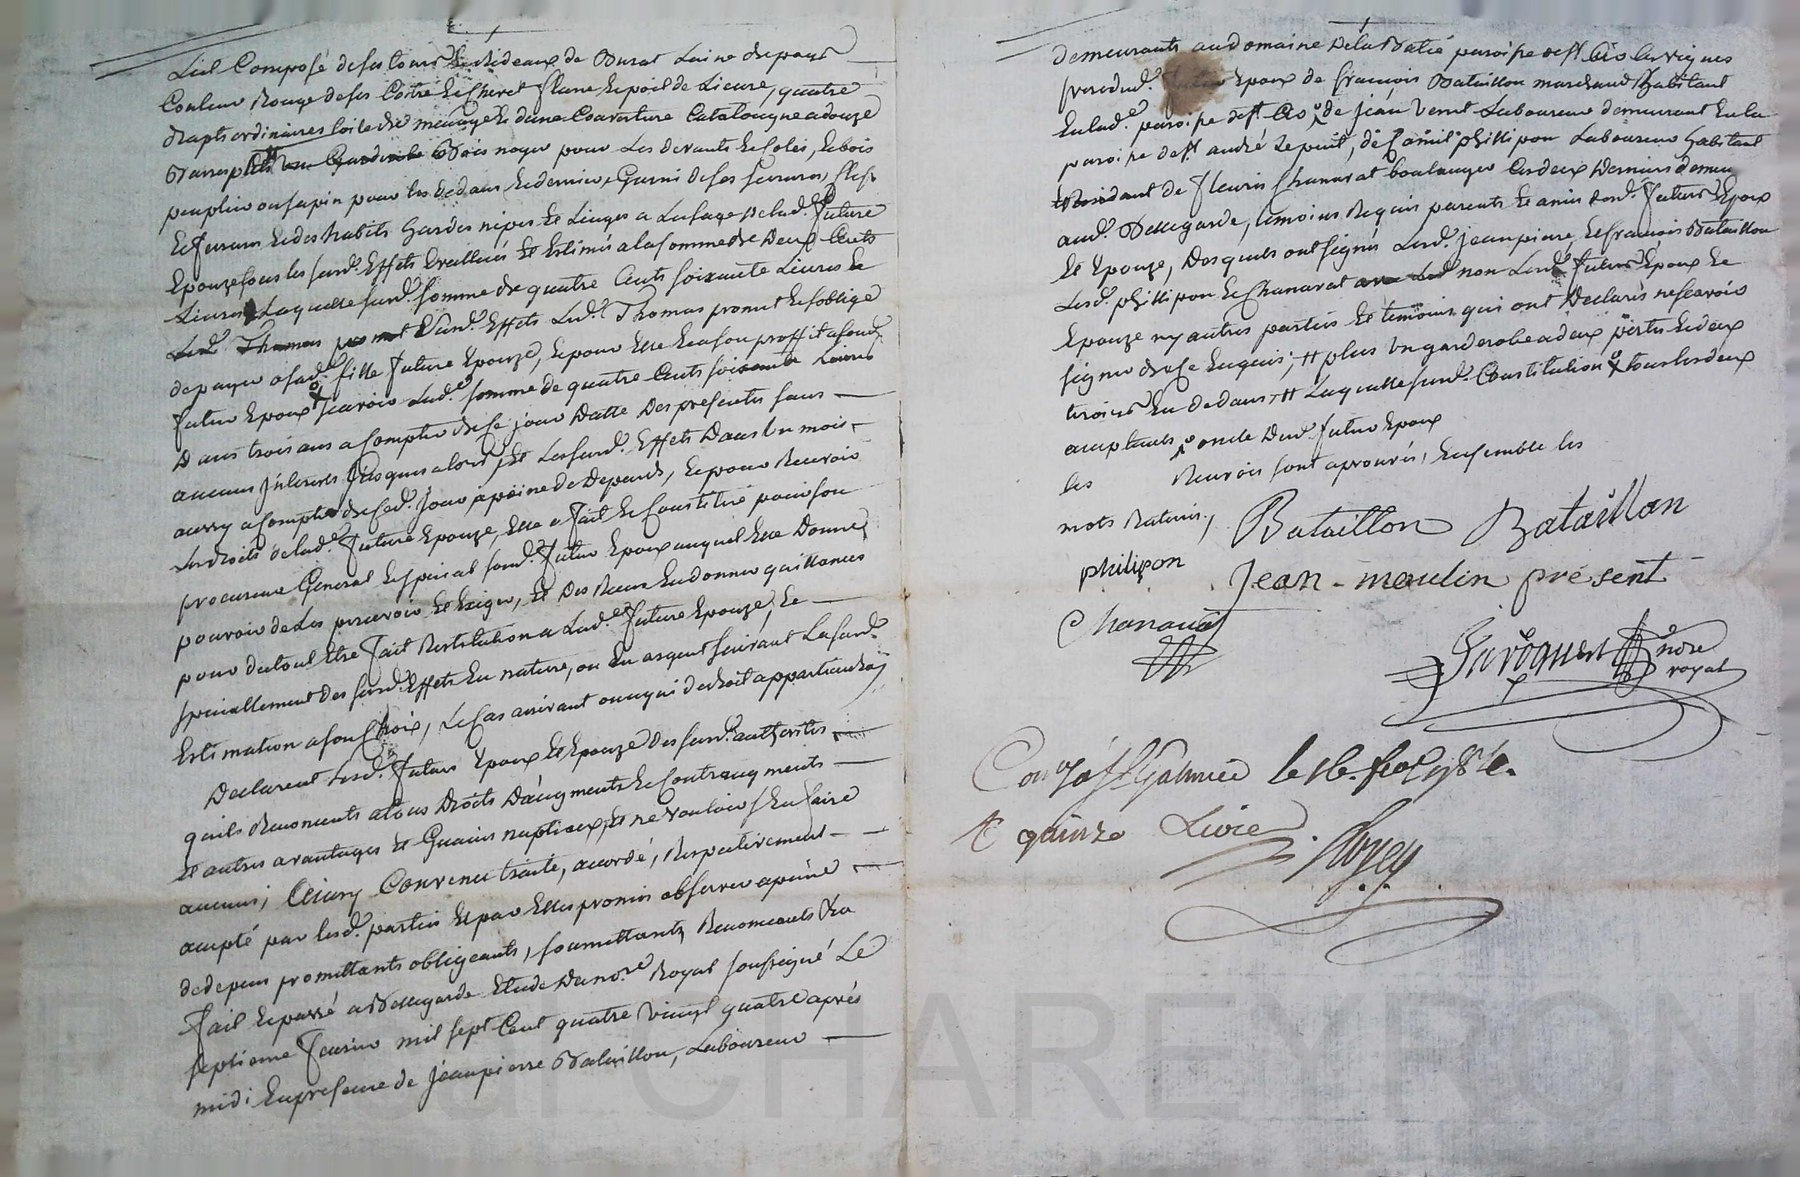 Lict Composé de ses tours & Rideaux de Burat Laine drapous
Couleur Rouge de ses Coitre & Chevet plume & poil de Lievre, quatre
draps ordinaires toile de menage & d'une Couverture Catalougne a douze
Barres Bois noyer pour les devants & Coles, & bois
peuplier ou sapin pour les dedans & derrier, Garni de ses serrures, clefs
& ferrures & des habits hardes nipes & Linges a Lusage de lad.e future
Epouze tous les susd. Effets Evallués & Estimés a la somme de deux Cents
Livres Laquelle susd.e somme de quatre Cents soixante Livres &
Led. Effets Led. Thomas promet & s'oblige
de payer a sad.e fille future Epouze, & pour Elle & a son proffit aud.
futur Epoux scavoir Lad.e somme de quatre Cents soixante Livres
Dans trois ans a Compter de Ce jour Datte Des presentes sans
aucuns jnterets jusques alors, Et Les susd. Effets Dans Un mois
aussy a Compter de Ced. jour, a peine de Depends, & pour Recevoir
Les droits de lad.e future Epouze, Elle a fait & Constitué pour son
procureur General & special sond. futur Epoux auquel Elle Donne
pouvoir de Les percevoir & Exiger, Et Des Receu En donner quittances
pour du tout Etre fait Restitution a Lad.e future Epouze, &
specialement des susd. Effets En nature, ou En argent suivant La susd.e
Estimation a son Choix, Le Cas arrivant ou a qui de droit appartiendra
Declarent Lesd. futurs Epoux & Epouze Des susd. authorités
quils Renoncent a tous Droits D'augments & Contraugments
Et autres avantages Et Guains nuptiaux, Et ne Vouloir s'En faire
aucuns; Ainsy Convenu traité, accordé, Respectivement
accepté par lesd. parties Et par Elles promis observer a peine
de depens promettants obligeants, soumettants Renonceants &a
fait & passé a Bellegarde Etude Du no.re Royal soussigné Le
septieme fevrier mil sept Cent quatre Vingt quatre après
midi En presence de Jean pierre Bataillon, Laboureur
demeurants au domaine de la Batie paroisse de St Cir les vignes
Epoux de francois Bataillon marchand habitant
En lad.e paroisse de St Cir, de Jean Veut Laboureur demeurant En la
paroisse de St andré le puit, de phillipon Laboureur habitant
de fleuris Chanavat boulanger Les deux Derniers demeu
aud. Bellegarde, temoins Requis parents & amis desd. futurs Epoux
Et Epouze, Desquels ont signés Lesd. jean pierre, & francois Bataillon
Lesd. phillipon & Chanavat non Lesd. futurs Epoux &
Epouze ny autres parties & temoins qui ont Declarés ne scavoir
signer de Ce Enquis, # plus Un garderobe a deux portes & deux
tiroirs En dedans # Laquelle susd.e Constitution tous les deux
acceptants oncle Dud. futur Epoux
les Renvois sont aprouvés, Ensemble les
mots Raturés,
Bataillon Bataillan
philipon
Jean-moulin présent
Chanavat
no.re
royal
Con.lé à St Galmier le 16. feve 1784.
R quinze Livre